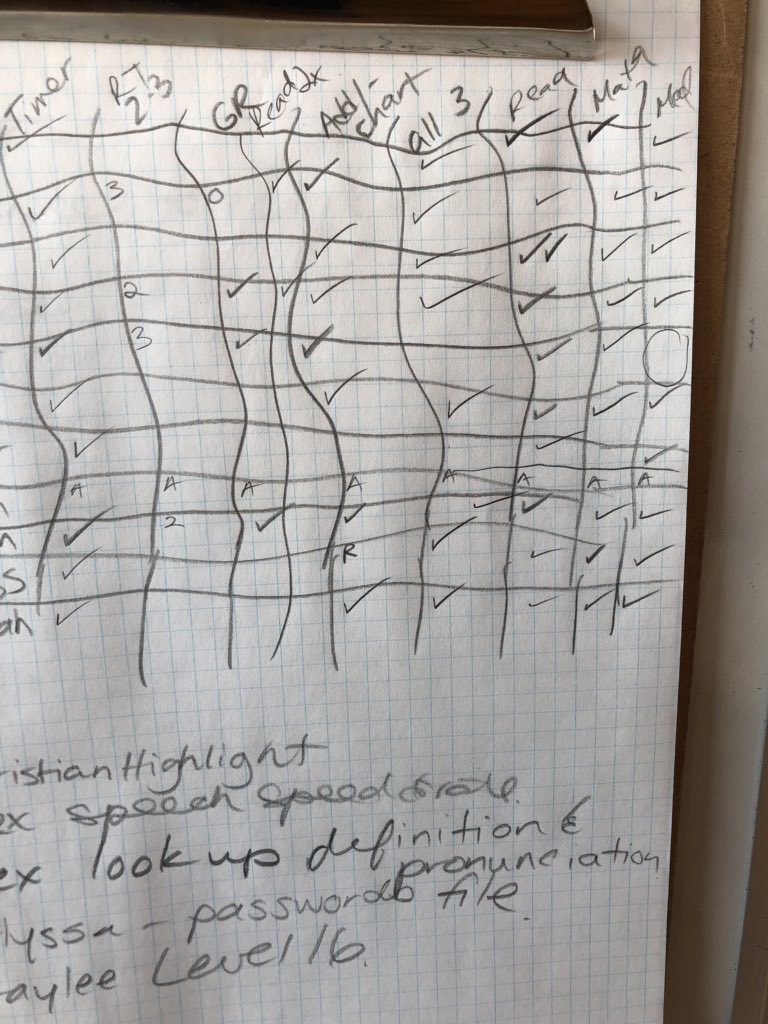 Timer RT 2-3 GR Read 2x Add/- chart all 3 Read Math Med
✓ ✓ ✓ ✓ ✓
✓ 3 0 ✓ ✓ ✓ ✓ ✓ ✓
✓ ✓ ✓ ✓✓ ✓ ✓
✓ 2 ✓ ✓ ✓ ✓ ✓ ✓ ✓
✓ 3 ✓ ✓ ✓ ✓
✓ ✓ ✓ ✓ ✓ ✓
✓ ✓ ✓
A A A A A A A A
✓ 2 ✓ ✓ ✓ ✓ ✓ ✓
✓ R ✓ ✓ ✓ ✓
✓ ✓ ✓ ✓ ✓ ✓
ristian Highlight
ex speech speed
ex look up definition &
pronunciation
lyssa - passwords file
aylee Level 16.